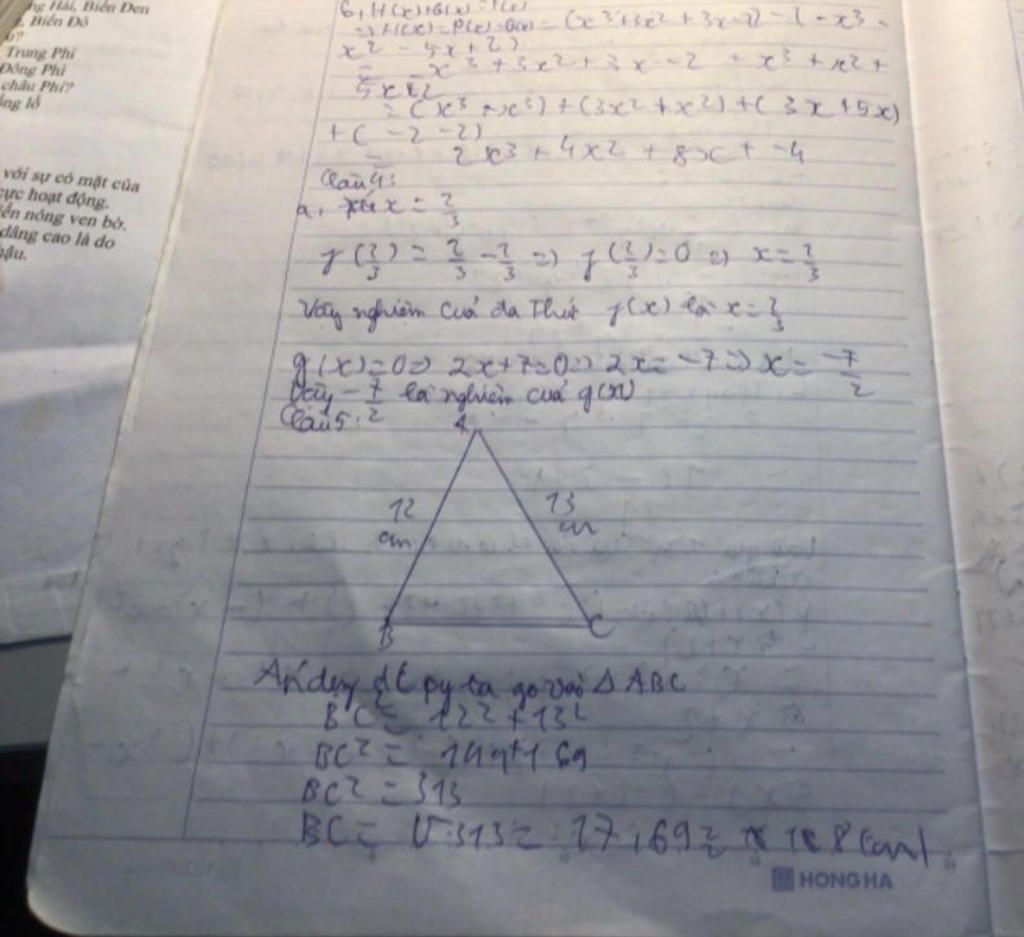 ng Hải, Biển Đen
Biển Đỏ
Trung Phi
Đông Phi
châu Phi?
ng lồ
với sự có mặt của
cực hoạt động.
ển nóng ven bờ.
dâng cao là do
hậu.
=) H(x) = P(x) - Q(x) = (x³ + 3x² + 3x - 2) - ( - x³ -
x² - 5x + 2)
= x³ + 3x² + 3x - 2 + x³ + x² +
5x - 2
= (x³ + x³) + (3x² + x²) + ( 3x + 5x)
+ ( - 2 - 2)
= 2x³ + 4x² + 8x + - 4
Câu 4:
a, x = 2/3
f (2/3) = 2/3 - 2/3 =) f (2/3) = 0 =) x = 2/3
Vậy nghiệm của đa thức f(x) là x = 2/3
g(x) = 0 =) 2x + 7 = 0 =) 2x = -7 =) x = -7/2
Vậy - 7/2 là nghiệm của g(x)
Câu 5:
A
12
cm
13
cm
B
C
đl py ta go vào Δ ABC
BC² = 12² + 13²
BC² = 144 + 169
BC² = 313
BC = √313 = 17,69
HONG HA